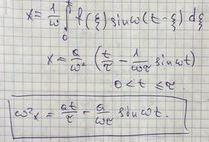 x = 1/ω ∫₀ᵗ f(ξ) sin ω(t - ξ) dξ
x = a/ω² (t/τ - 1/ωτ sin ωt)
0 < t ≤ τ
ω²x = at/τ - a/ωτ sin ωt.